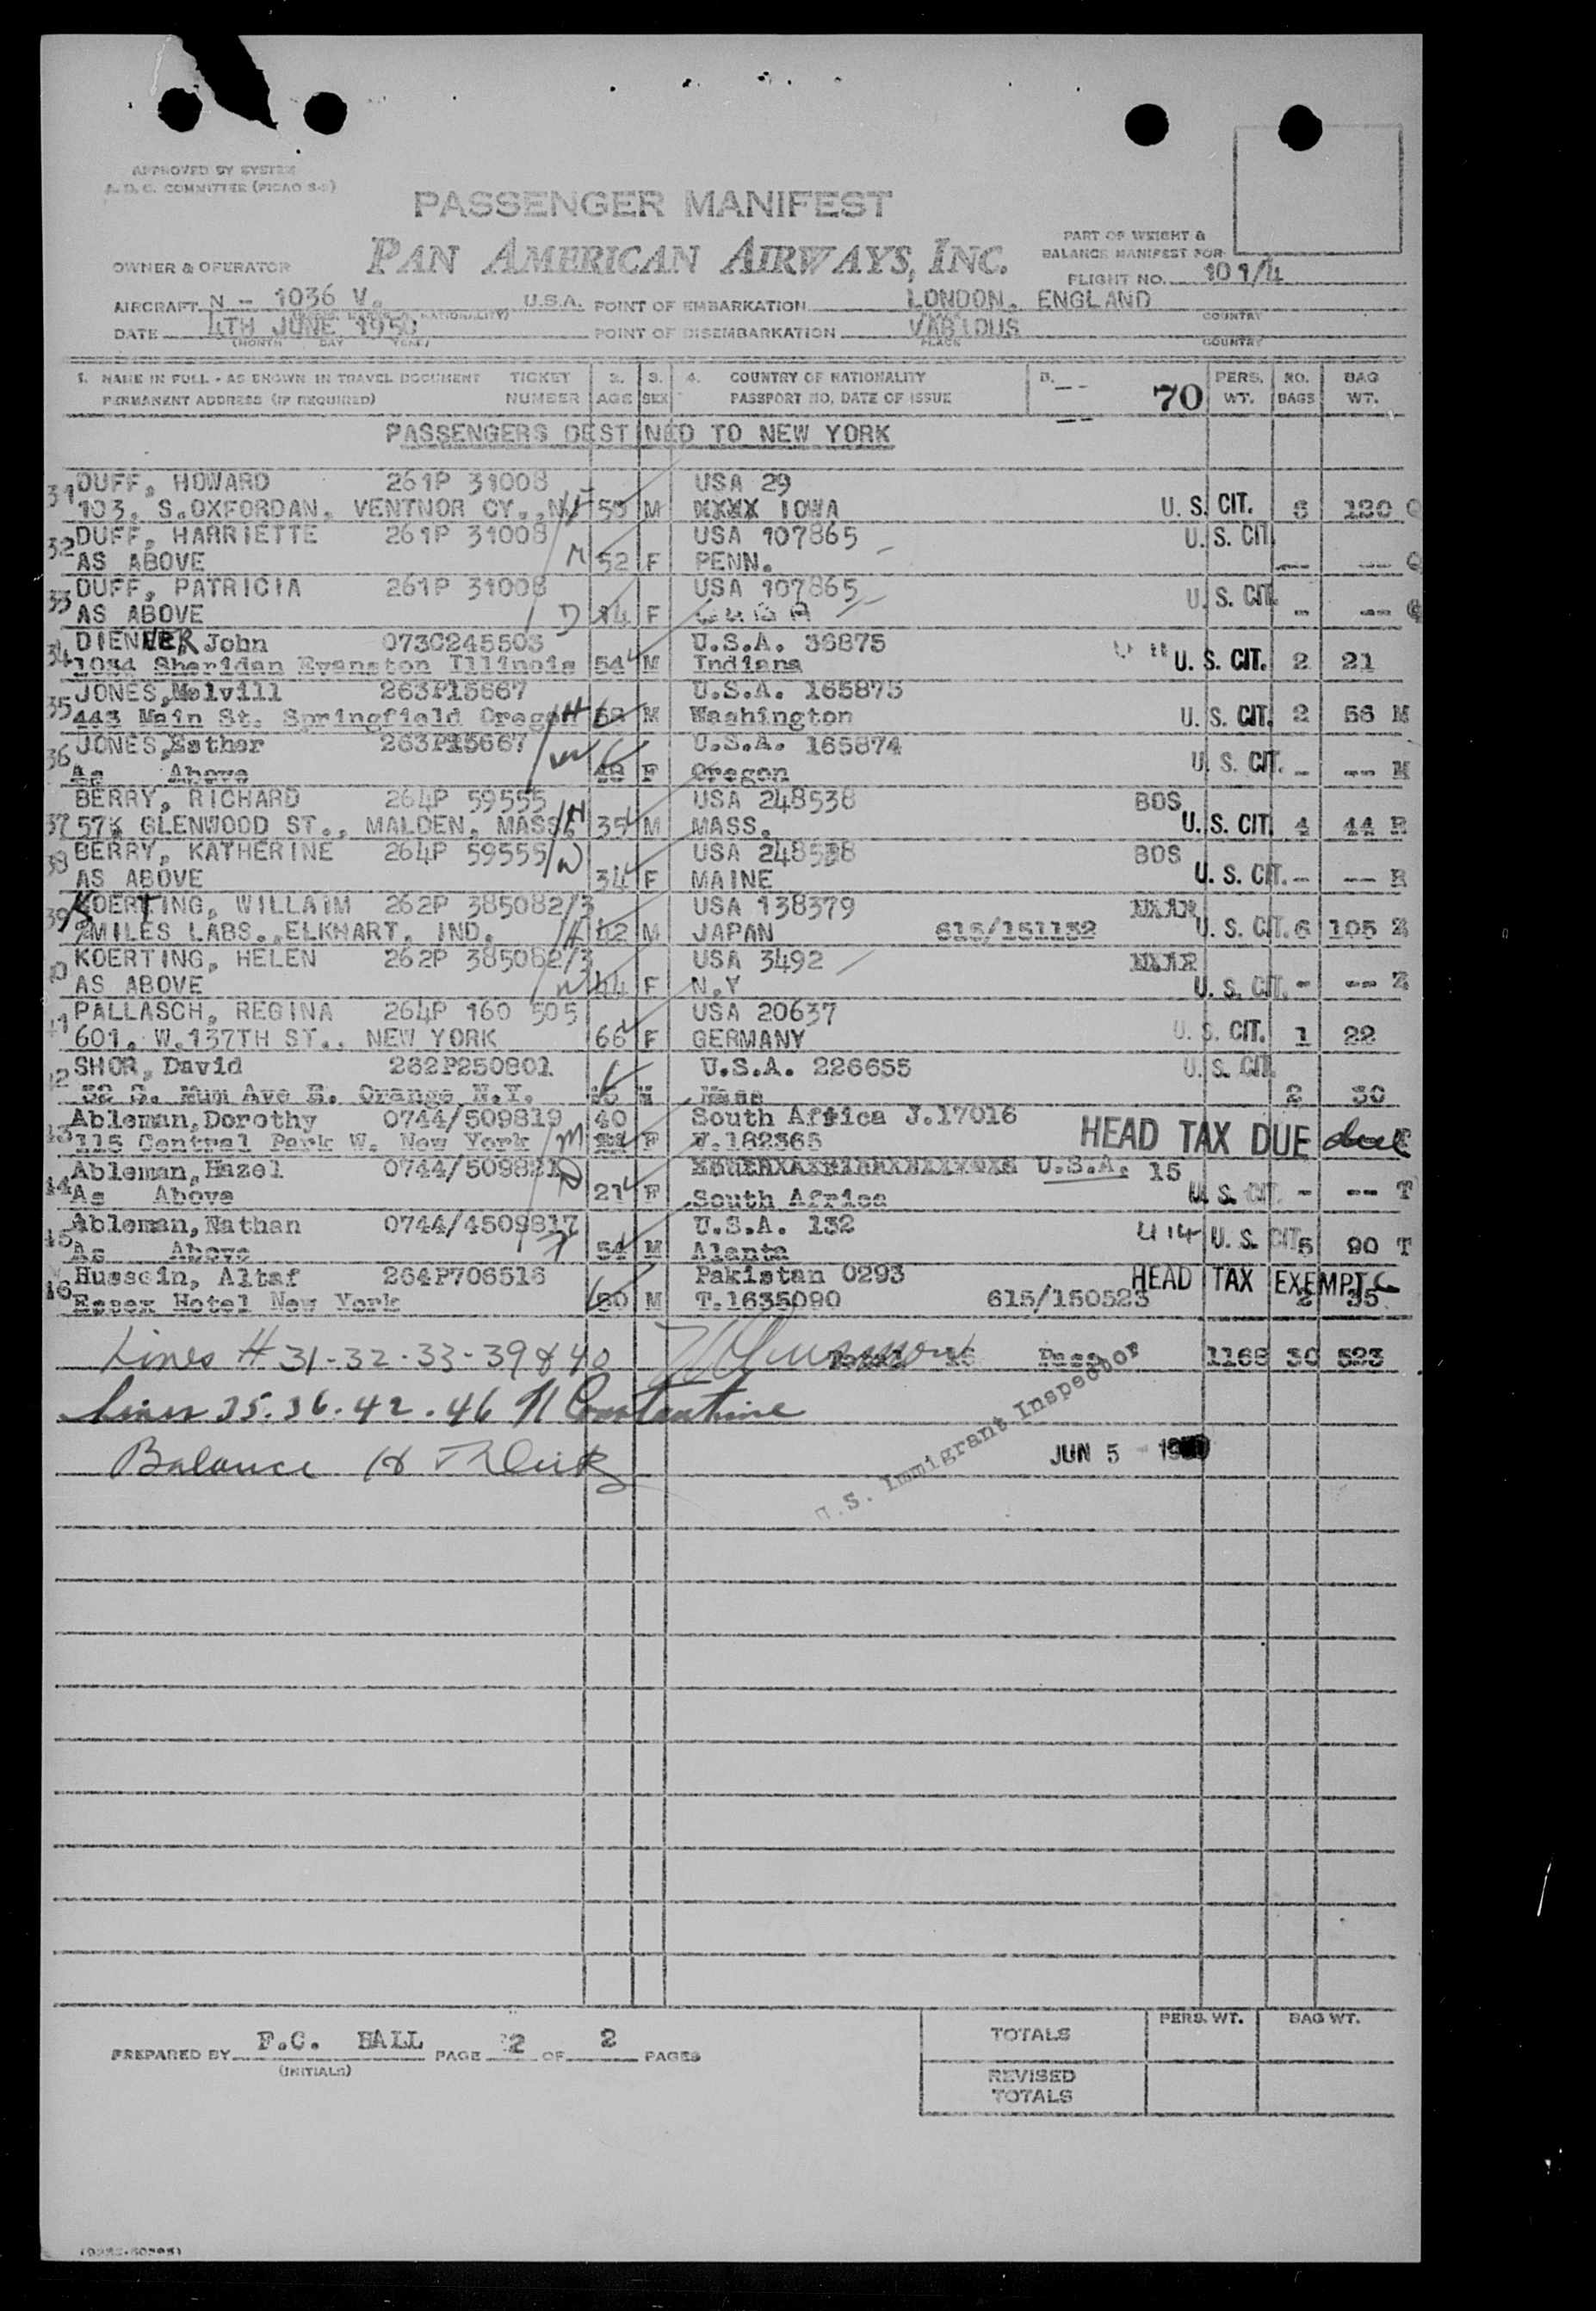 APPROVED BY SYSTEM
A. D. C. COMMITTEE (PICAO S-5)
PASSENGER MANIFEST
PART OF WEIGHT &
BALANCE MANIFEST FOR
OWNER & OPERATOR PAN AMERICAN AIRWAYS, INC.
FLIGHT NO. 101/4
AIRCRAFT N - 1036 V. U.S.A. POINT OF EMBARKATION LONDON. ENGLAND
COUNTRY
DATE 4TH JUNE 1950 POINT OF DISEMBARKATION VARIOUS
(MONTH DAY YEAR) PLACE COUNTRY
1. NAME IN FULL - AS SHOWN IN TRAVEL DOCUMENT TICKET 2. 3. 4. COUNTRY OF NATIONALITY 70 PERS. NO. BAG
PERMANENT ADDRESS (IF REQUIRED) NUMBER AGE SEX PASSPORT NO, DATE OF ISSUE WT. BAGS WT.
PASSENGERS DESTINED TO NEW YORK
31 DUFF, HOWARD 261P 31008 USA 29
103. S.OXFORDAN. VENTNOR CY., NJ M XXXX IOWA U. S. CIT. Q
32 DUFF, HARRIETTE 261P 31008 USA 107865 U. S. CIT.
AS ABOVE 52 F PENN. -- --- Q
33 DUFF, PATRICIA 261P 31008 USA 107865 U. S. CIT.
AS ABOVE D 14 F - -- Q
34 DIENNER John 073C245503 U.S.A. 36875
1034 Sheridan Evanston Illinois 54 M Indiana U. S. CIT. 2 21
35 JONES, Melvill 263P15667 U.S.A. 165875
443 Main St. Springfield Oregon H M Washington U. S. CIT. 2 56 M
36 JONES, Esther 263P15667 U.S.A. 165874
As Above W F Oregon U. S. CIT. - -- M
37 BERRY, RICHARD 264P 59555 USA 248538 BOS
57½ GLENWOOD ST., MALDEN, MASS. H 35 M MASS. U. S. CIT. 4 44 R
38 BERRY, KATHERINE 264P 59555 W USA 248538 BOS
AS ABOVE 34 F MAINE U. S. CIT. - -- R
39 KOERTING, WILLAIM 262P 385082/3 USA 138379
℅MILES LABS., ELKHART, IND. H 42 M JAPAN 615/151132 U. S. CIT. 6 105 Z
40 KOERTING, HELEN 262P 385082/3 USA 3492
AS ABOVE W 44 F N.Y U. S. CIT. - -- Z
41 PALLASCH, REGINA 264P 160 505 USA 20637
601. W.137TH ST., NEW YORK 66 F GERMANY U. S. CIT. 1 22
42 SHOR, David 262P250801 U.S.A. 226655 U. S. CIT.
Orange N.Y. M Mass 2 30
43 Ableman, Dorothy 0744/509819 40 South Africa J.17016
115 Central Park W. New York M F V.182365 HEAD TAX DUE due
44 Ableman, Hazel D U.S.A. 15
As Above 21 F South Africa U. S. CIT. - -- T
45 Ableman, Nathan 0744/4509817 U.S.A. 132
As Above H 54 M Alanta U. S. CIT. 5 90 T
46 Hussein, Altaf 264P706516 Pakistan 0293 HEAD TAX EXEMPT
Essex Hotel New York M T.1635090 615/150523 2 35
Lines # 31-32-33-39 & 40 16 Pass 1168 30 523
Lines 35. 36. 42. 46 N Constantine
U.S. Immigrant Inspector
Balance JUN 5
PREPARED BY F.C. HALL PAGE 2 OF 2 PAGES
(INITIALS)
TOTALS PERS. WT. BAG WT.
REVISED
TOTALS